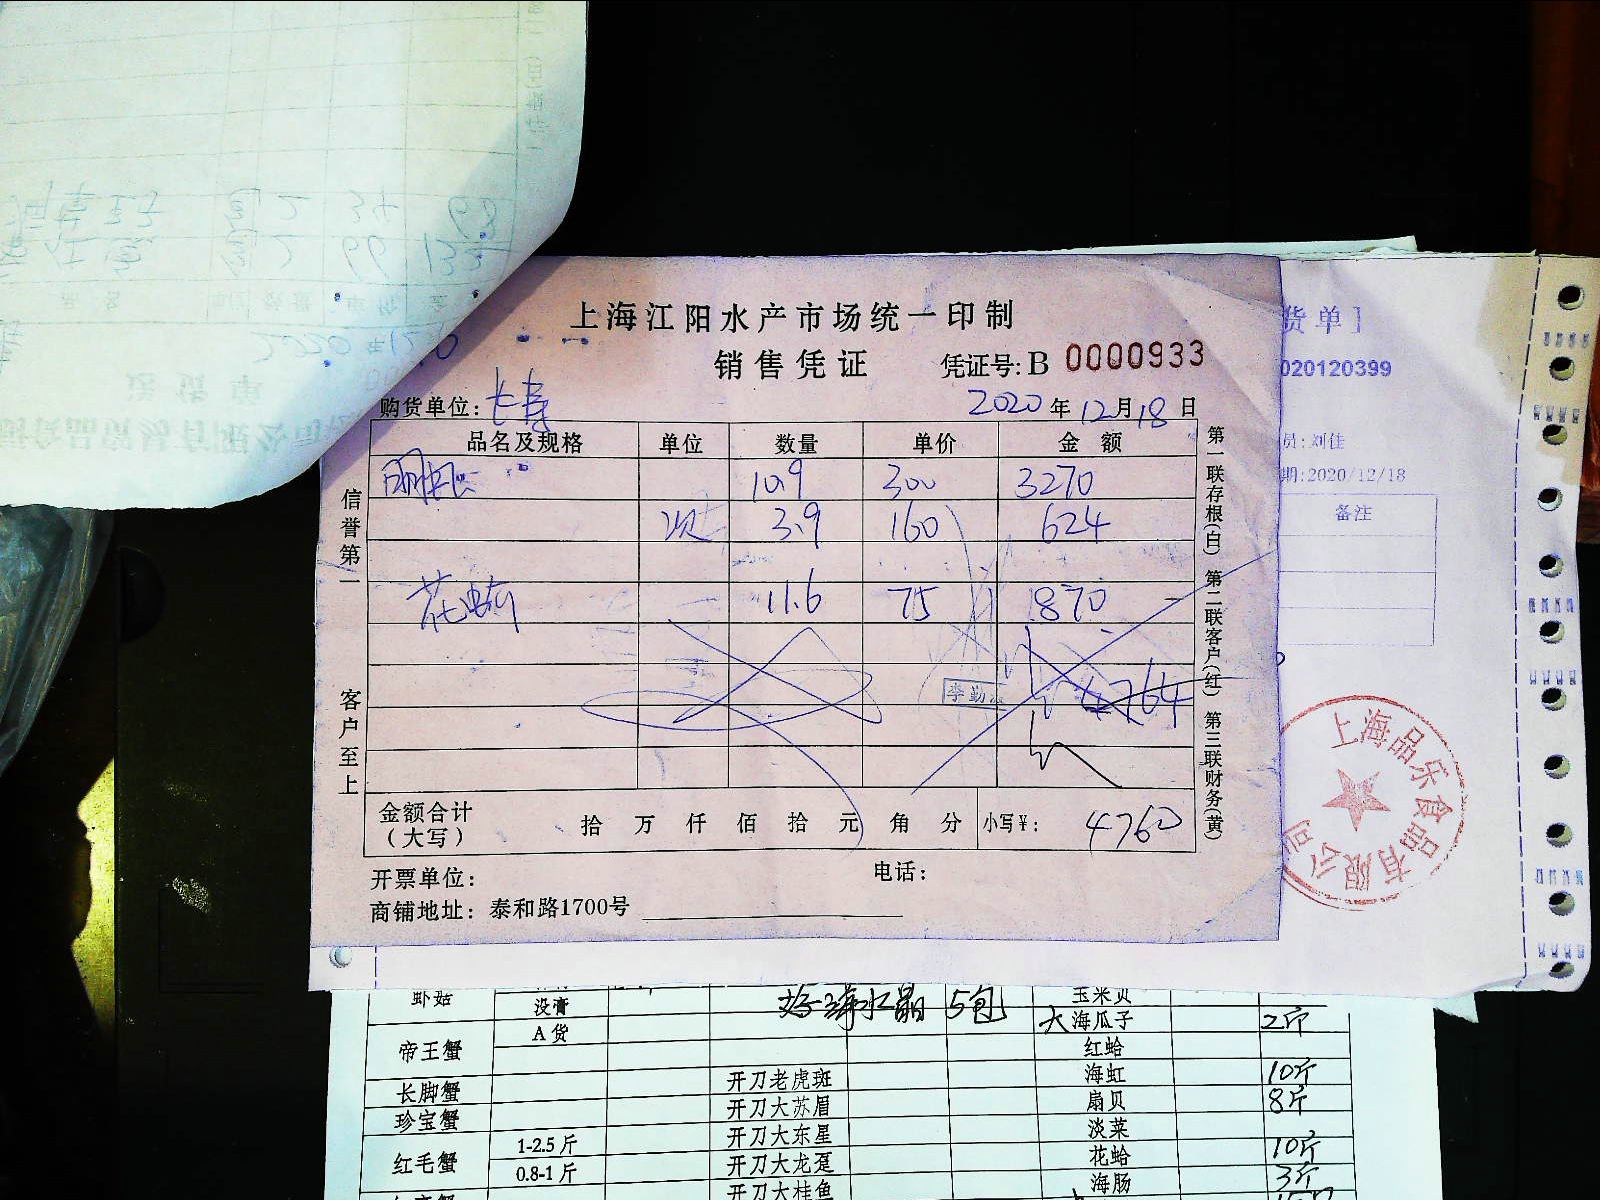 上海江阳水产市场统一印制
销售凭证 凭证号: B 0000933
购货单位: 长寿 2020年12月18日
品名及规格 单位 数量 单价 金额
明虾 10.9 300 3270
次 3.9 160 624
花 11.6 75 870
4764
李勤
金额合计(大写) 拾 万 仟 佰 拾 元 角 分 小写¥: 4760
开票单位: 电话:
商铺地址: 泰和路1700号
信誉第一
客户至上
第一联存根(白) 第二联客户(红) 第三联财务(黄)
货单]
020120399
员: 刘佳
期:2020/12/18
备注
上海品乐食品有限公司
虾菇 没膏 海水晶 5包 玉米贝
A货 大海瓜子 2斤
帝王蟹 红蛤
长脚蟹 开刀老虎斑 海虹 10斤
珍宝蟹 开刀大苏眉 扇贝 8斤
红毛蟹 1-2.5斤 开刀大东星 淡菜
0.8-1斤 开刀大龙趸 花蛤 10斤
开刀大桂鱼 海肠 3斤